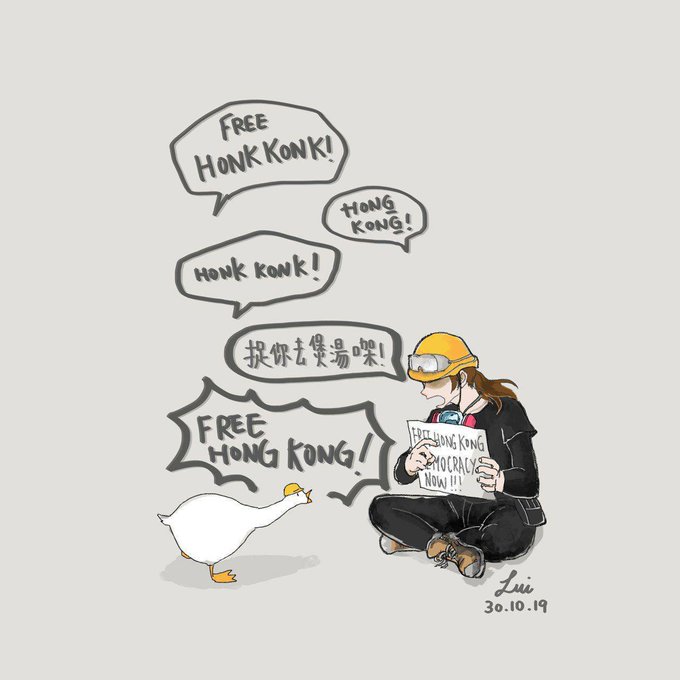 FREE
HONK KONK!
HONG
KONG!
HONK KONK!
捉你去煲湯㗎!
FREE
HONG KONG!
FREE HONG KONG
MOCRACY
NOW!!!
Lui
30.10.19